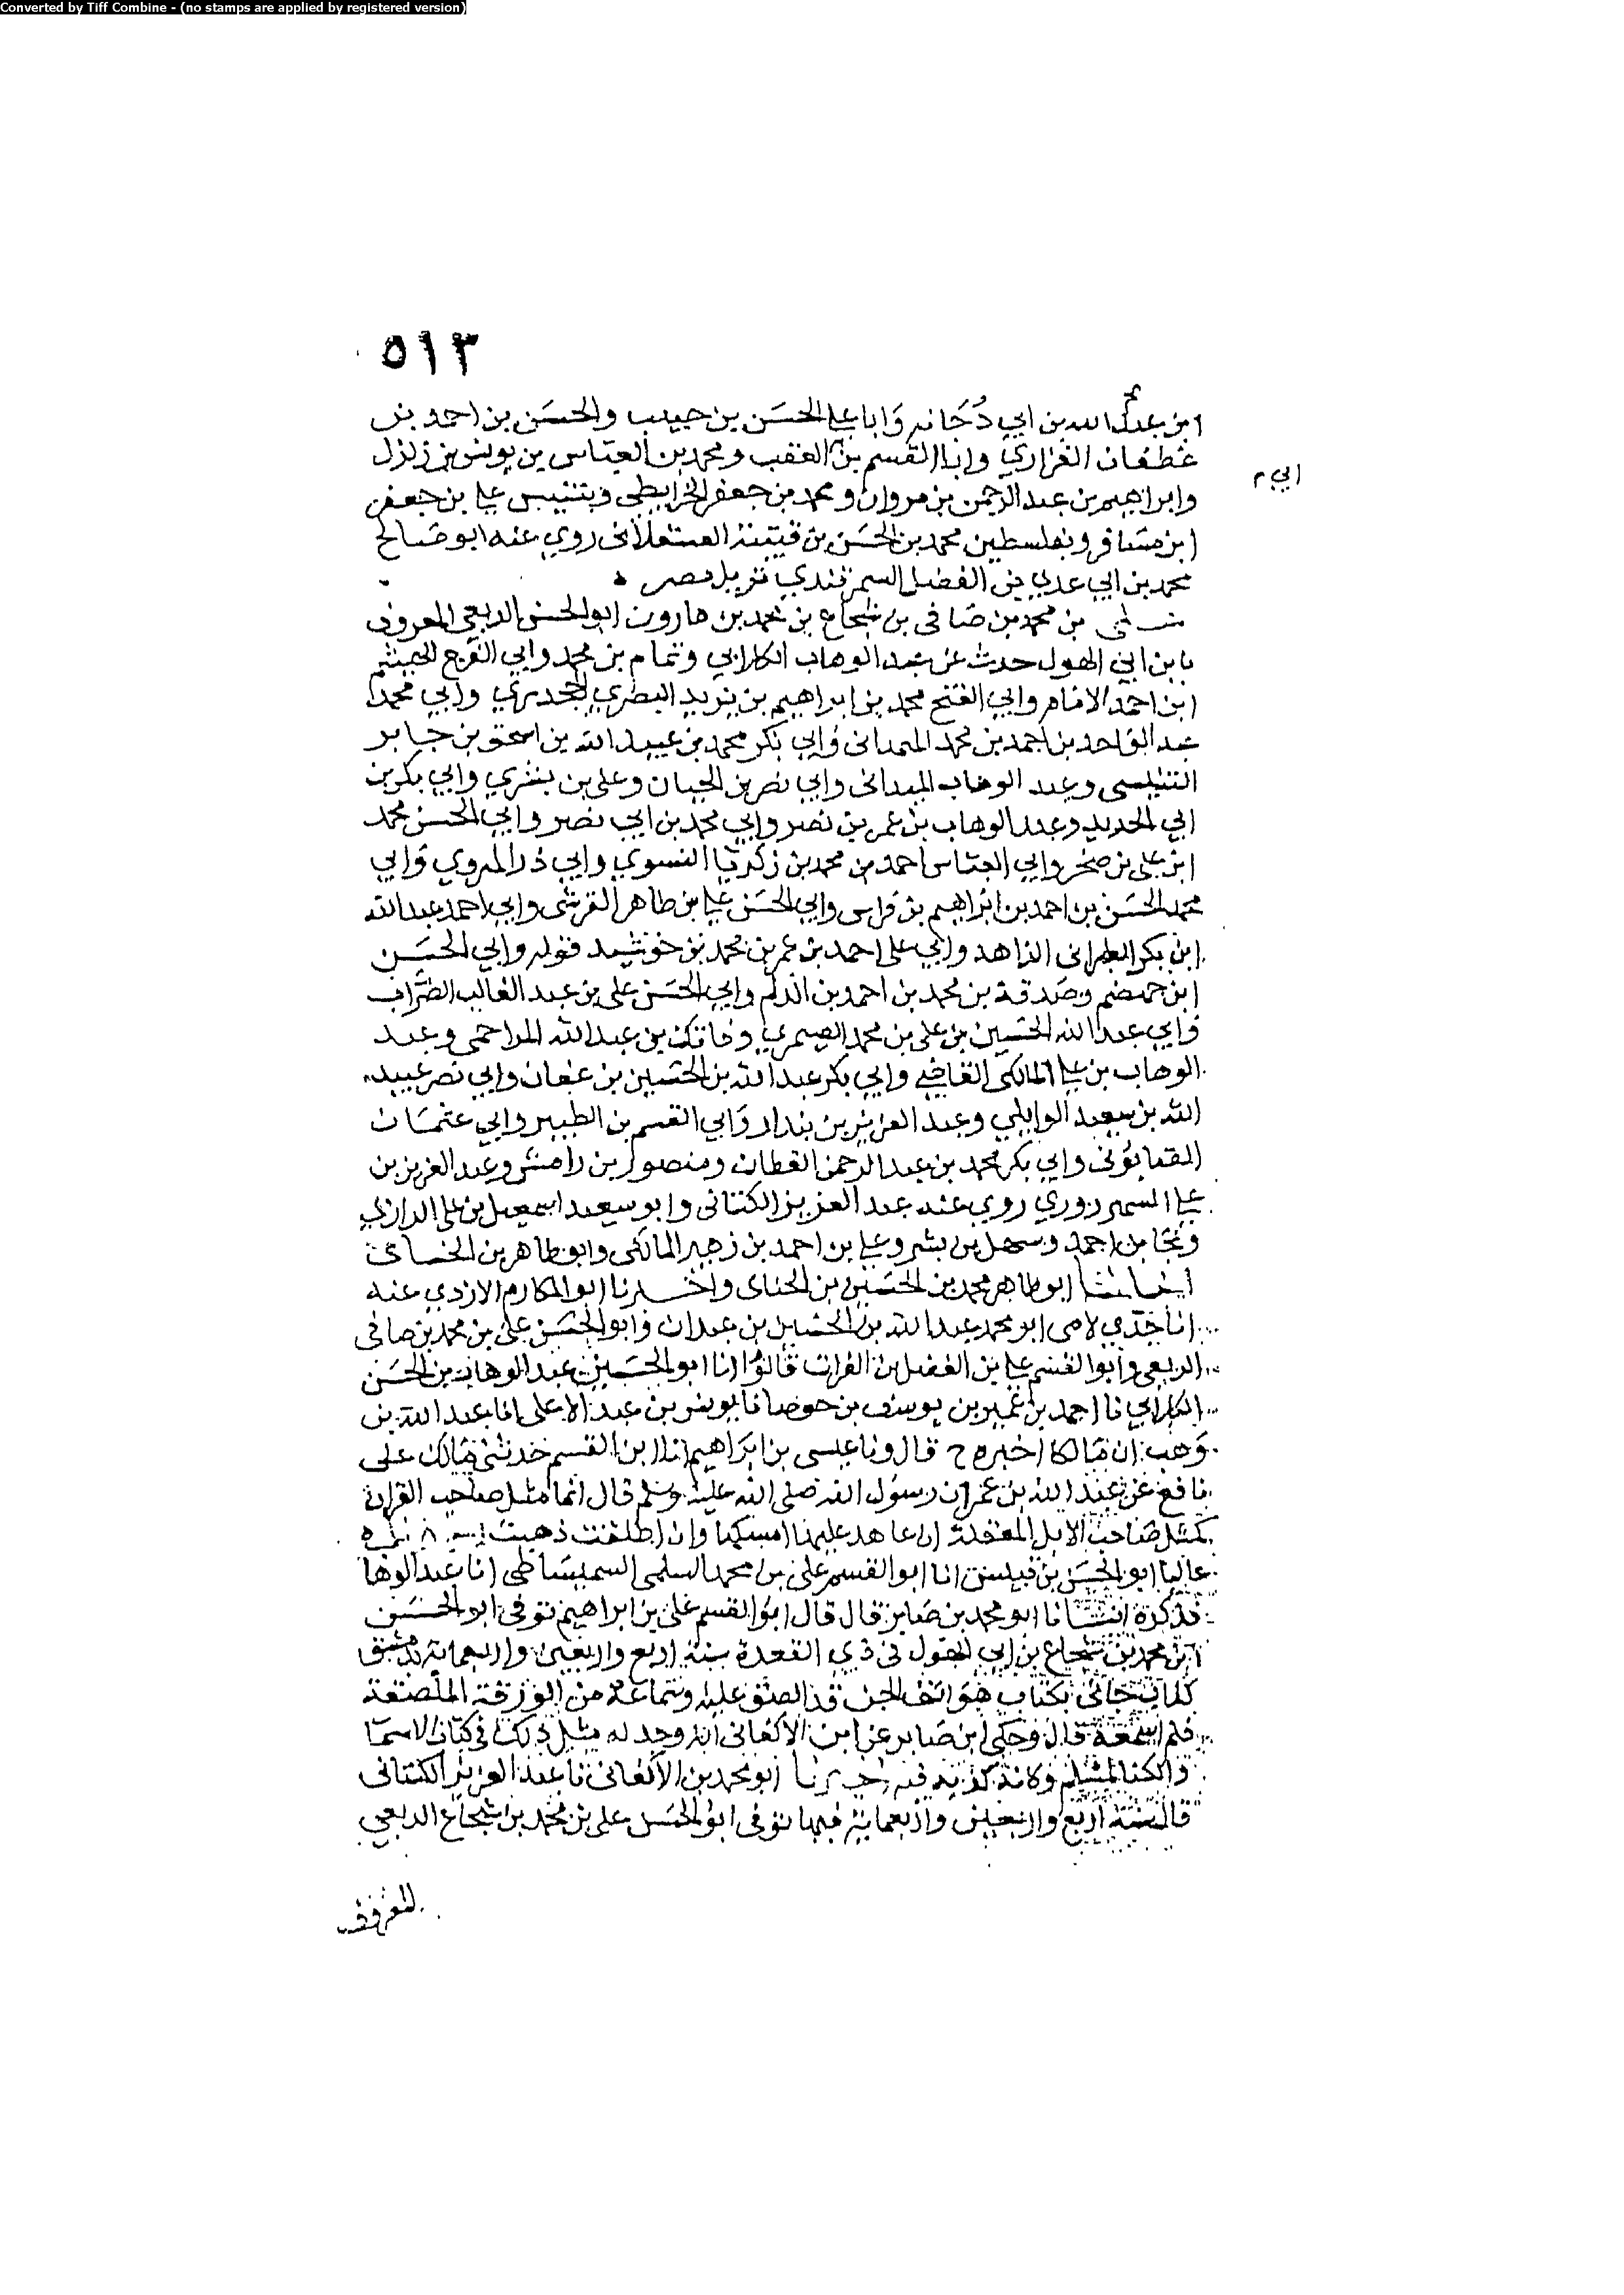 Converted by Tiff Combine - (no stamps are applied by registered version)
٥١٣
ابن عبد الله بن ابي دُجانه وَابا علي الحسَن بن حبيب والحسَن بن احمد بن
غطفان الفزاري وابا القسم بن العقب ومحمد بن العبّاس بن يونس بن زلزل
ابي م
وابراهيم بن عبد الرحمن بن مروان ومحمد بن جعفر الخرايطي وبتنيس علي بن جعفر
ابن مسَافر وبفلسطين محمد بن الحسَن بن قتيبة العسقلانى روي عنه ابو صَالح
محمد بن ابي عدي بن الفضل السمرقندي نزيل مصر
علي بن محمد بن صَافى بن شجاع بن محمد بن هارون ابو الحسن الربعي المعروف
بابن ابي الهول حدث عن عبد الوهاب الكلابي وتمام بن محمد وابي الفرج الهيثم
ابن احمد الامَام وابي الفتح محمد بن ابراهيم بن يزيد البصري الجحدري وابي محمد
عبد الواحد بن احمد بن محمد الهمدانى وابي بكر محمد بن عبيد الله بن اسحق بن جابر
التنيسى وعبد الوهاب الميدانى وابي نصر بن الجبان وعلى بن بشري وابي بكر بن
ابي الحديد وعبد الوهاب بن عمر بن نصر وابي محمد بن ابي نصر وابي الحسن محمد
ابن على بن صخر وابي العبّاس احمد بن محمد بن زكريّا النسوي وابي ذر الهروي وَابي
محمد الحسَن بن احمد بن ابراهيم بن فراس وابي الحسَن علي بن طاهر القرشى وابي احمد عبد الله
ابن بكر الطبرانى الزاهد وابي على احمد بن عمر بن محمد بن خرشيد قوله وابي الحسَن
ابن جهضم وصَدقة بن محمد بن احمد بن الدلم وابي الحسَن على بن عبد الغالب الضرّاب
وَابي عبد الله الحسَين بن على بن محمد الصيمري وفاتك بن عبد الله المزاحمى وعبد
الوهاب بن علي المالكى القاضي وابي بكر عبد الله بن الحسَين بن عفان وابي نصر عبيد
الله بن سعيد الوايلي وعبد العزيز بن بندار وَابي القسم بن الطبيز وابي عثمان
الصابونى وابي بكر محمد بن عبد الرحمن القطان ومنصور بن رامش وعبد العزيز بن
علي الشهرزوري روي عنه عبد العزيز الكتانى وابو سعيد اسمعيل بن على الرازي
ونجا بن احمد وسهل بن بشر وعلي بن احمد بن زهير المالكى وابو طاهر بن الحنائى
انبانا ابو طاهر محمد بن الحسَين بن الحنائى واخبرنا ابو المكارم الازدي عنه
انا جَدّي لامى ابو محمد عبد الله بن الحسَين بن عبدان وَابو الحسَن على بن محمد بن صافى
الربعي وابوا القسم علي بن الفضل بن الفرات قالوُا انا ابو الحسَين عبد الوهاب بن الحسَن
الكلابي نا احمد بن عُمير بن يوسف بن حوصا نا يونس بن عبد الاعلى انا عبد الله بن
وَهب ان مَالكا اخبره ح قال ونا عيسى بن ابرَاهيم انا ابن القسم حدثنى مَالك على
نافع عن عبد الله بن عمر ان رسوُل الله صلى الله عليه وسلم قال انما مثل صَاحب القران
كمثل صَاحب الابل المعقلة ان عاهد عليها امسكها وان اطلقت ذهبت
عاليا ابو الحسَن بن قبيس انا ابو القسم على بن محمد السلمى السميسَاطى انا عبد الوها
فذكره انشانا ابو محمد بن صَابر قال قال ابوُ القسم على بن ابراهيم توفى ابو الحسَن
ابن محمد بن شجاع بن ابي الهول فى ذي القعدة سنة اربع واربعين واربعماية بدمشق
كلاب جَائى بكتاب هوَاتف الجن قد الصق عليه وسَماعه من الورقة الملصَقة
فلم اسمعه قال وحكى ابن صَابر عن ابن الاكفانى انه وجد له مثل ذلك فى كتاب الاسما
والكنا لمسلم وَلانه كذبه فيه اخبرنا ابو محمد بن الاكفانى نا عبد العزيز الكتانى
قال سنة اربع واربعين واربعماية فيها توفى ابوُ الحسَن على بن محمد بن شجاع الربعي
المعروف